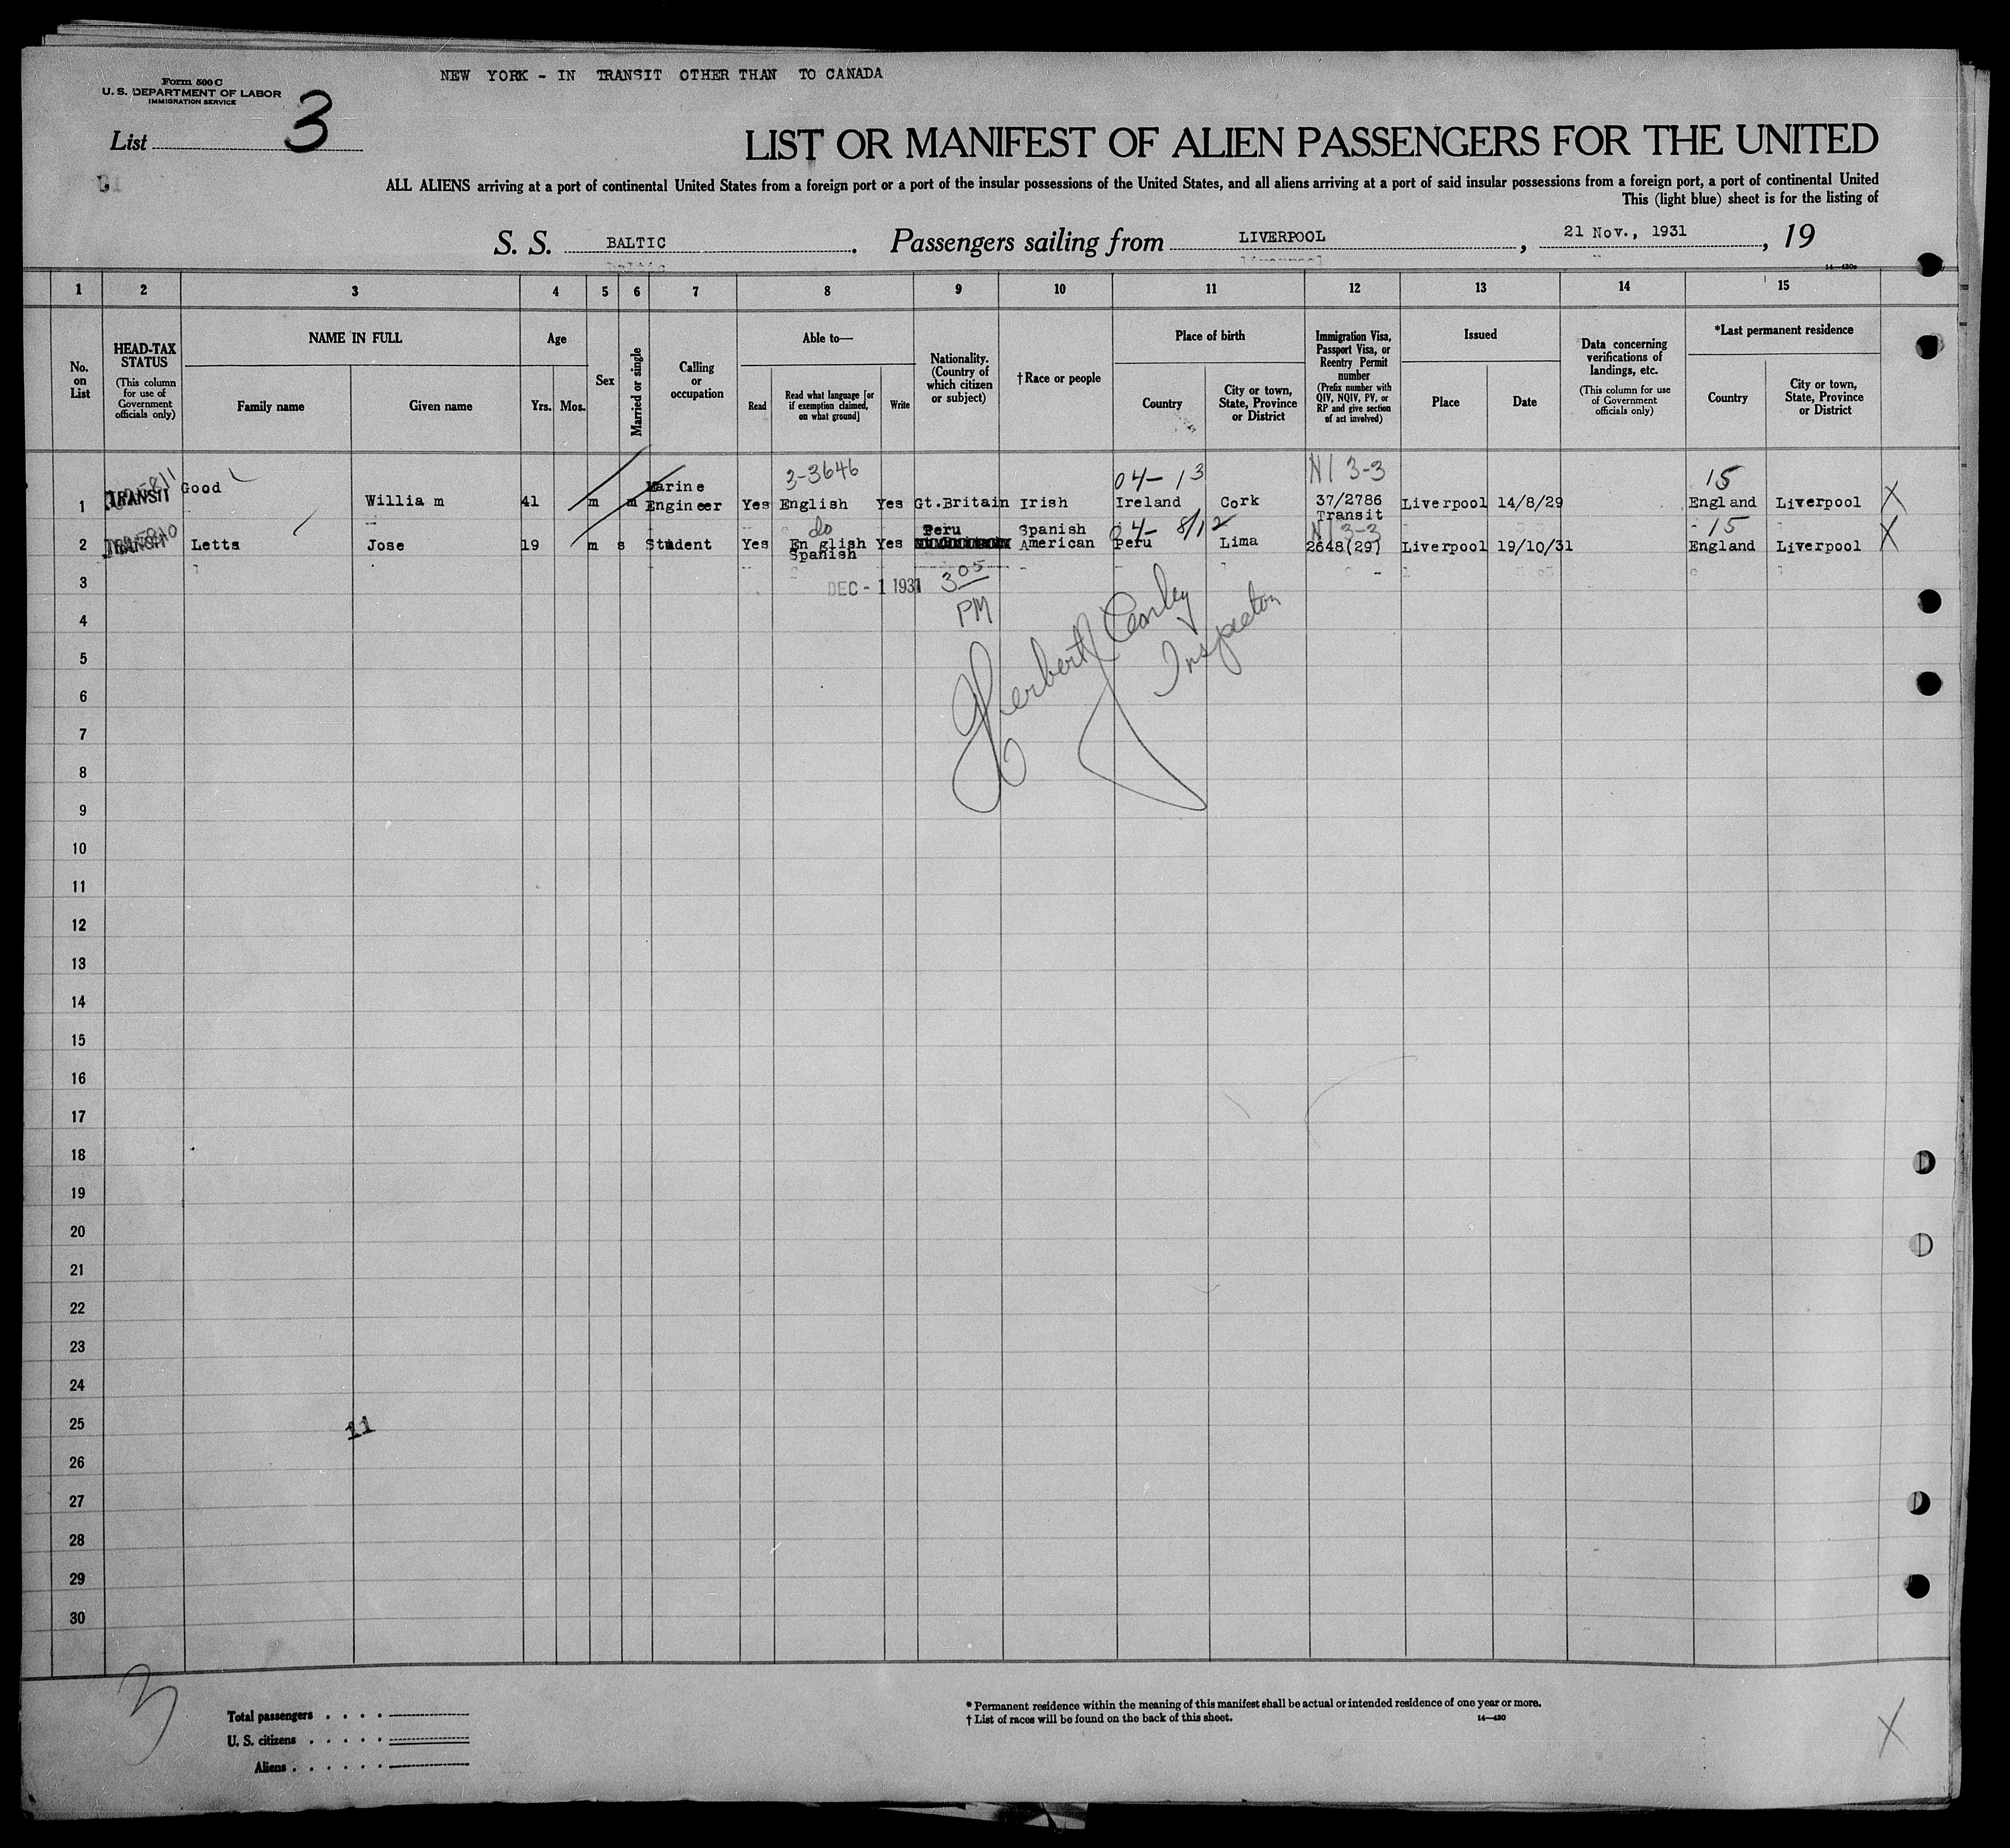 NEW YORK - IN TRANSIT OTHER THAN TO CANADA
Form 500 C
U. S. DEPARTMENT OF LABOR
IMMIGRATION SERVICE
List 3
LIST OR MANIFEST OF ALIEN PASSENGERS FOR THE UNITED
ALL ALIENS arriving at a port of continental United States from a foreign port or a port of the insular possessions of the United States, and all aliens arriving at a port of said insular possessions from a foreign port, a port of continental United
This (light blue) sheet is for the listing of
S. S. BALTIC. Passengers sailing from LIVERPOOL, 21 Nov., 1931, 19
14—430a
1 2 3 4 5 6 7 8 9 10 11 12 13 14 15
No. on List
HEAD-TAX STATUS
(This column for use of Government officials only)
NAME IN FULL
Family name
Given name
Age
Yrs. Mos.
Sex
Married or single
Calling or occupation
Able to—
Read
Read what language [or if exemption claimed, on what ground]
Write
Nationality. (Country of which citizen or subject)
†Race or people
Place of birth
Country
City or town, State, Province or District
Immigration Visa, Passport Visa, or Reentry Permit number
(Prefix number with QIV, NQIV, PV, or RP and give section of act involved)
Issued
Place
Date
Data concerning verifications of landings, etc.
(This column for use of Government officials only)
*Last permanent residence
Country
City or town, State, Province or District
3-3646 04-13 N1 3-3 15
1 TRANSIT Good Willia m 41 m m Marine Engineer Yes English Yes Gt.Britain Irish Ireland Cork 37/2786 Transit Liverpool 14/8/29 England Liverpool X
do 04- 8/12 N1 3-3 15
2 TRANSIT Letts Jose 19 m s Student Yes En glish Spanish Yes Peru Spanish American Peru Lima 2648(29) Liverpool 19/10/31 England Liverpool X
DEC - 1 1931 3 05 PM
Herbert Conley
Inspector
3
4
5
6
7
8
9
10
11
12
13
14
15
16
17
18
19
20
21
22
23
24
25
11
26
27
28
29
30
3
Total passengers
U. S. citizens
Aliens
* Permanent residence within the meaning of this manifest shall be actual or intended residence of one year or more.
† List of races will be found on the back of this sheet.
14—430
X